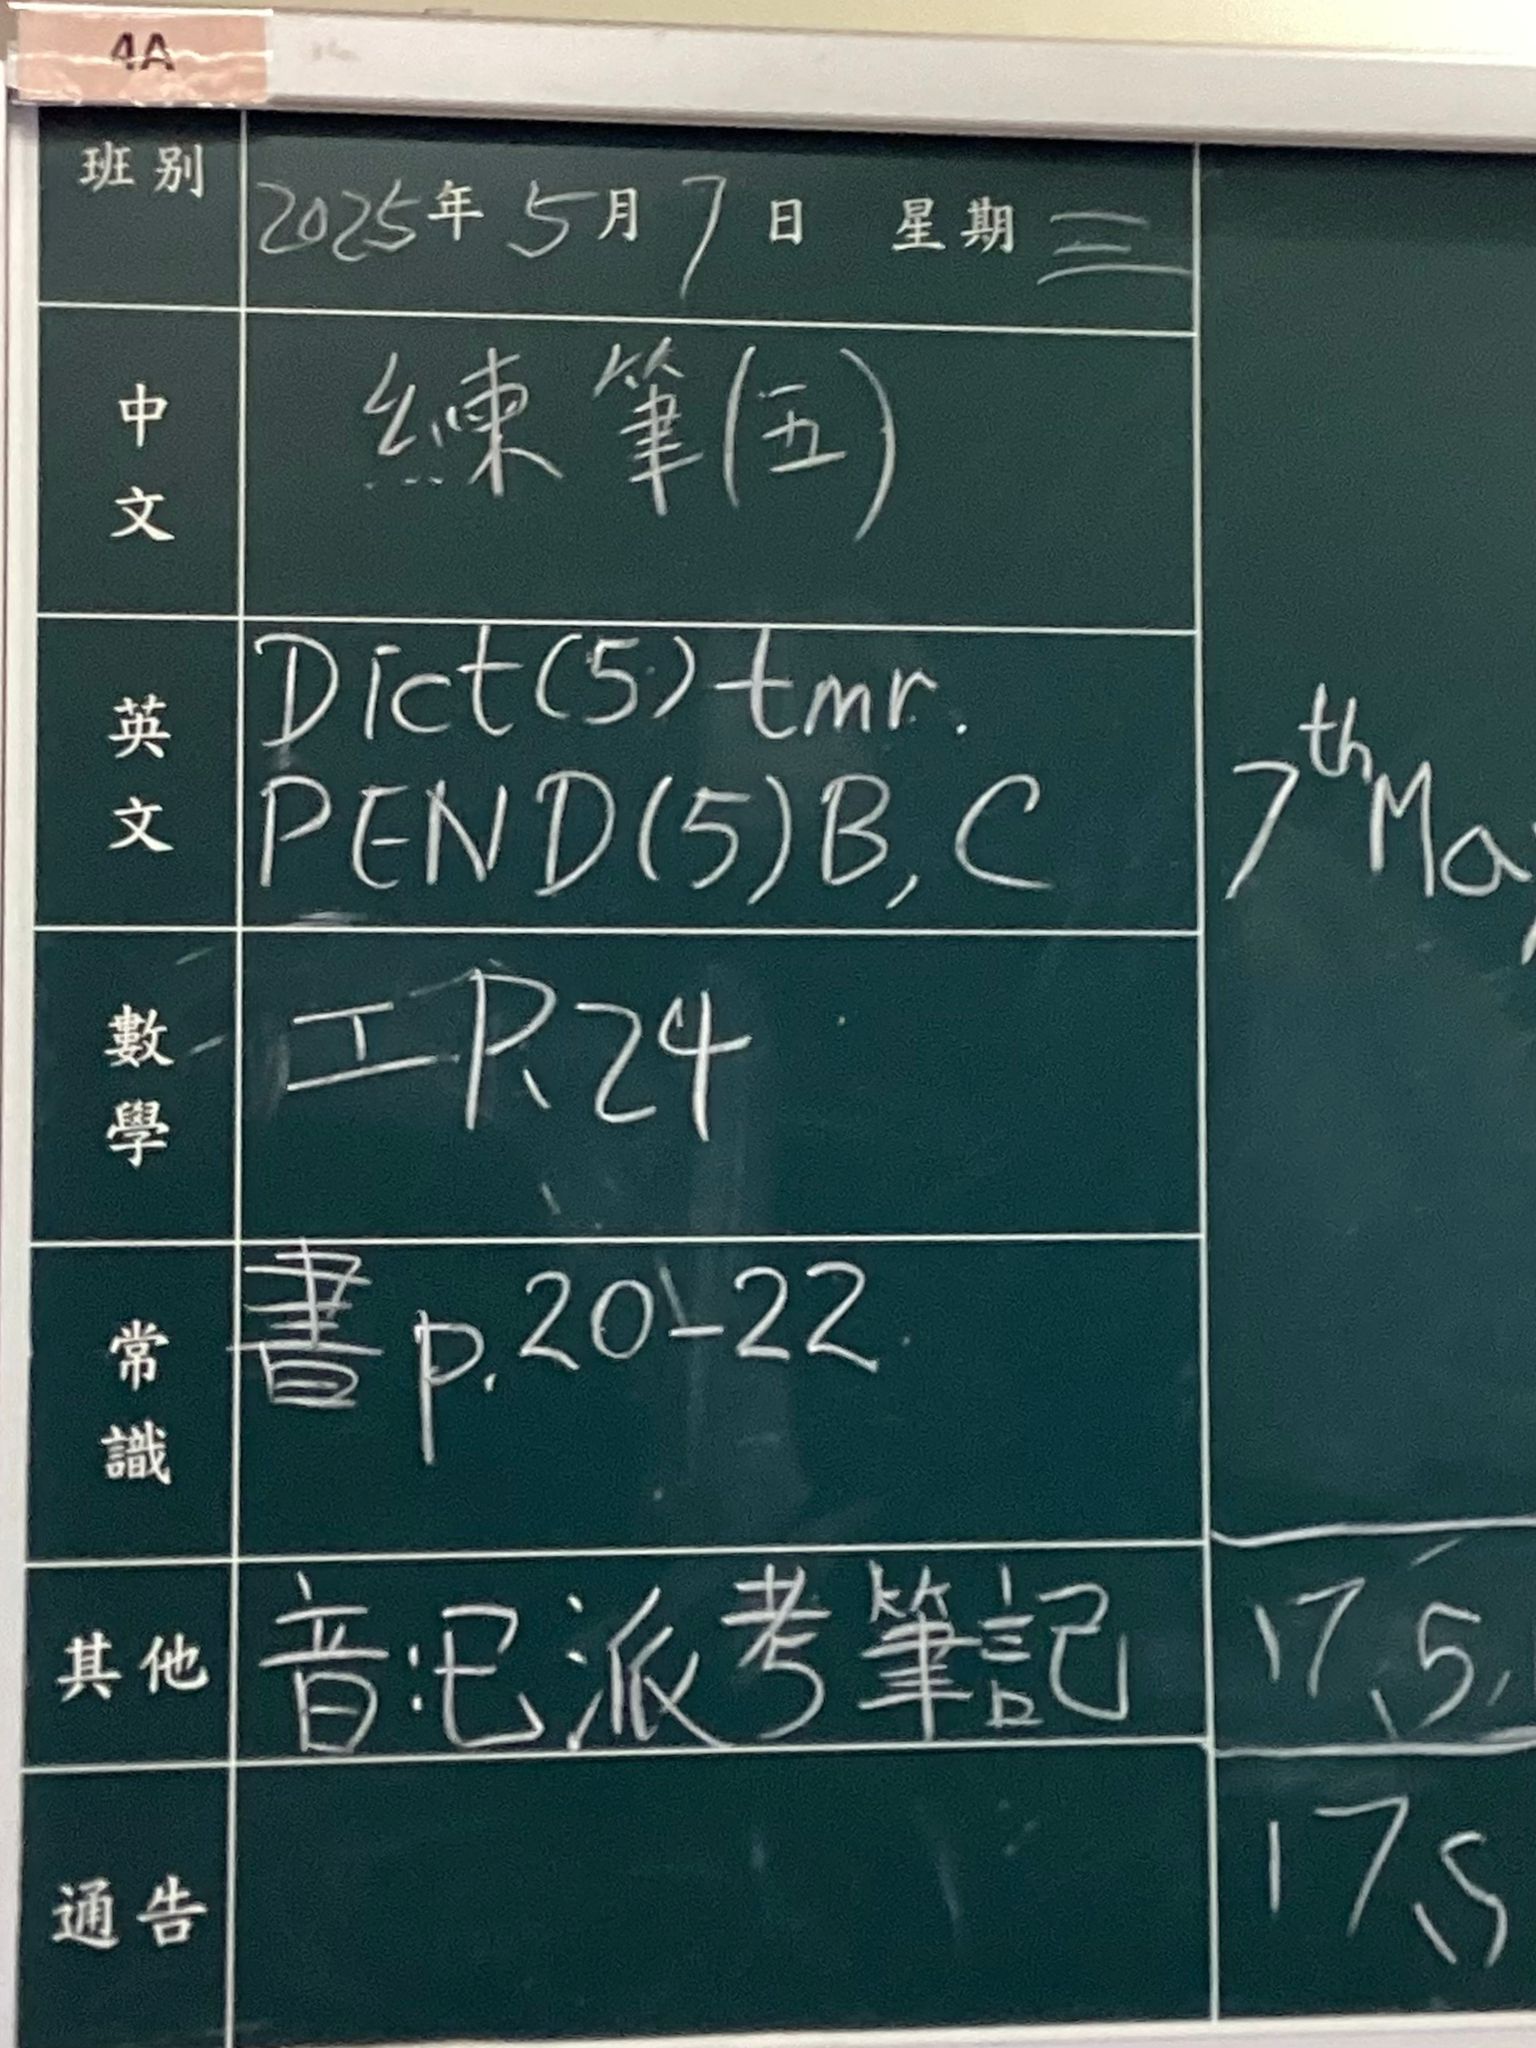 4A
班別
2025年5月7日 星期三
中文
練筆(五)
英文
Dict(5) tmr.
PEND(5)B, C
數學
工P.24
常識
書p.20-22
其他
音:已派考筆記
通告
7th Ma
17.5
17.5